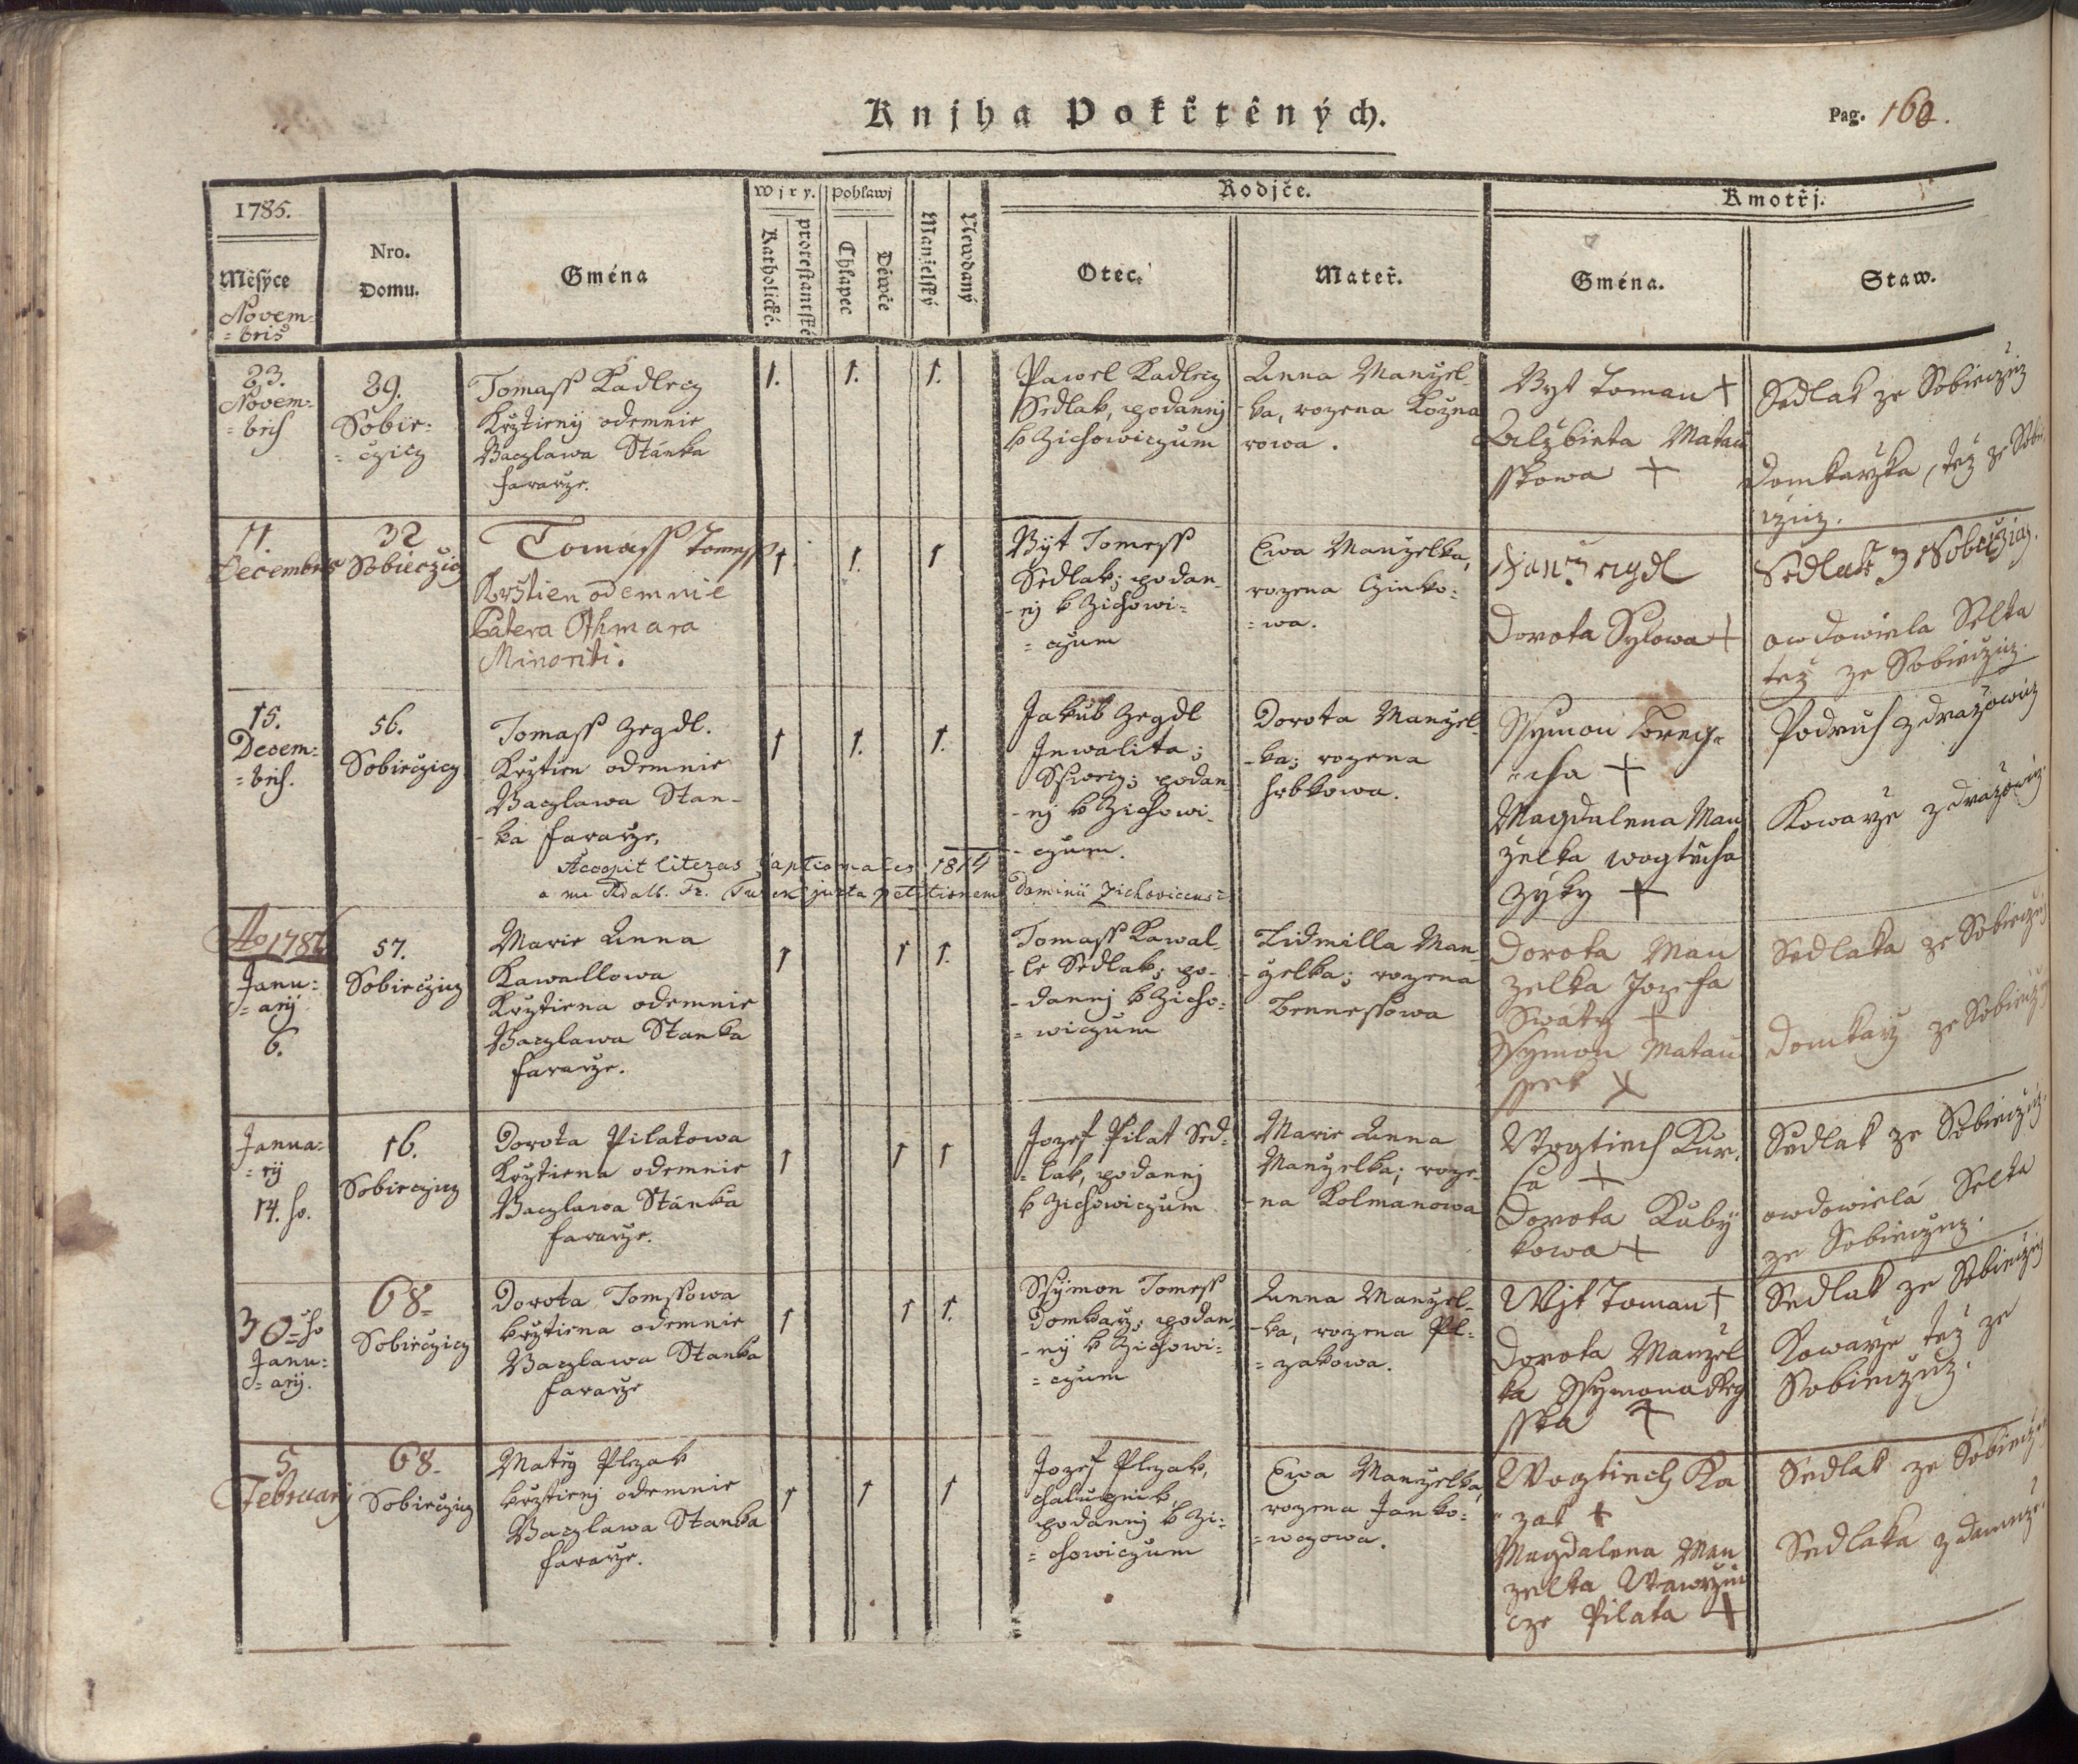 Knjha Pokřtěných.
Pag. 160.
1785.
Měsýce
Novem-
=bris
Nro.
Domu.
Gména
Wjry.
Katholické.
protestantské
Pohlawj
Chlapec
Děwče
Manželský
Newdaný
Rodjče.
Otec.
Mateř.
Kmotřj.
Gména.
Staw.
23.
Novem-
=bris
29.
Sobie=
=czicz
Tomass Kadlecz
Krztieny odemnie
Baczlawa Stánka
fararze.
1.
1.
1.
Pawel Kadlecz
Sedlak, podannj
k Zichowiczum
Anna Manzel-
-ka, rozena Kozna
rowa.
Vyt Toman +
Alzbieta Matau
sskowa +
Sedlak ze Sobieczicz
Domkarzka, tez ze Sobie
czicz.
11.
Decembris
32
Sobieczicz
Tomass Tomess
Krztien odemnie
Patera Othmara
Minoriti.
1
1.
1
Vyt Tomess
Sedlak; podan-
-ny k Zichowi=
=czum
Ewa Manzelka,
rozena Czinko=
=wa.
Jan Zegdl
Dorota Sylowa +
Sedlak z Sobieczicz.
owdowiela Selka
tez ze Sobieczicz.
15.
Decem=
=bris.
56.
Sobieczicz
Tomass Zegdl.
Krztien odemnie
Baczlawa Stan-
-ka fararze,
Accepit literas baptismales 1814
a me Adalb. Fr. Turek juxta petitionem Dominii Zichovicensis
1
1.
1.
Jakub Zegdl
Inwalita;
Sswecz; podan
-ny k Zichowi-
-czum.
Dorota Manzel-
-ka; rozena
Hrbkowa.
Ssymon Korey=
=cha +
Magdalena Man
zelka wogtěcha
Zyky +
Podruh z drazowicz
Kowarze z drazowicz.
Ao 1786
Janu=
=arij
6.
57.
Sobieczicz
Marie Anna
Kawallowa
Krztiena odemnie
Baczlawa Stanka
fararze.
1
1
1.
Tomass Kawal-
-le Sedlak; po-
-dannj k Zicho=
=wiczum
Lidmilla Man-
-zelka; rozena
Bennessowa
Dorota Man
zelka Jozefa
Swaty +
Ssymon Matau
ssek X
Sedlaka ze Sobieczicz
Domkarz ze Sobieczicz
Janua=
=rij
14. ho.
16.
Sobieczicz
Dorota Pilatowa
Krztiena odemnie
Baczlawa Stánka
fararze.
1
1
1
Jozef Pilat Sed=
=lak, podannj
k Zichowiczum
Marie Anna
Manzelka; roze-
-na Kolmanowa
Wogtiech Kur-
ka +
Dorota Kuby
kowa +
Sedlak ze Sobieczicz.
owdowielá Selka
ze Sobieczicz.
30=ho
Janu=
=arij.
68.
Sobieczicz
Dorota Tomssowa
krztiena odemnie
Baczlawa Stanka
fararze
1
1
1.
Ssymon Tomess
Domkarz; podan-
-ny k Zichowi=
=czum
Anna Manzel-
-ka, rozena Ple=
=zakowa.
Wjt Toman +
Dorota Manzel
ka Ssymona
sska +
Sedlak ze Sobieczicz
Kowarze tez ze
Sobieczicz.
5.
Februarij
68.
Sobieczicz
Matěg Plezak
krztienj odemnie
Baczlawa Stanka
fararze.
1
1
1
Jozef Plezak,
chalupnik,
podannj k Zi=
=chowiczum
Ewa Manzelka,
rozena Janko=
=wczowa.
Wogtiech Ka
=zak +
Magdalena Man
zelka Wawrzin
cze Pilata +
Sedlak ze Sobieczicz
Sedlaka z